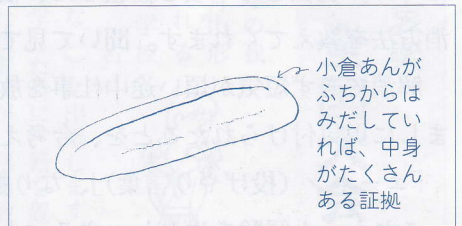 小倉あんが
ふちからは
みだしてい
れば、中身
がたくさん
ある証拠